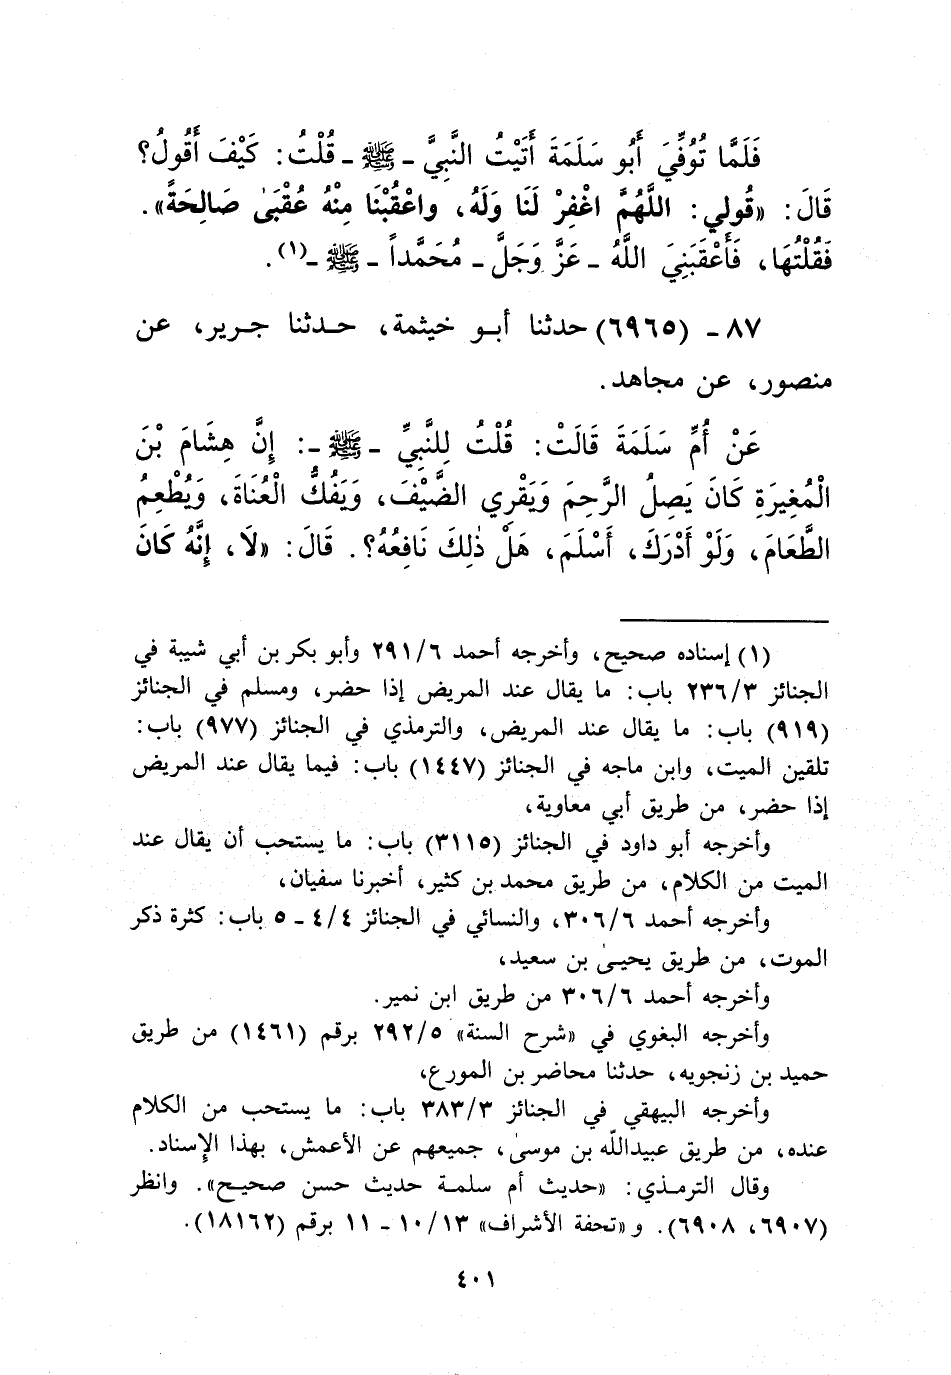 فَلَمَّا تُوُفِّيَ أَبُو سَلَمَةَ أَتَيْتُ النَّبِيَّ ـ ﷺ ـ قُلْتُ: كَيْفَ أَقُولُ؟
قَالَ: «قُولِي: اللَّهُمَّ اغْفِرْ لَنَا وَلَهُ، واعْقُبْنَا مِنْهُ عُقْبَىٰ صَالِحَةً».
فَقُلْتُهَا، فَأَعْقَبَنِيَ اللَّهُ ـ عَزَّ وَجَلَّ ـ مُحَمَّداً ـ ﷺ ـ(١).
٨٧ ـ (٦٩٦٥) حدثنا أبو خيثمة، حدثنا جرير، عن
منصور، عن مجاهد.
عَنْ أُمِّ سَلَمَةَ قَالَتْ: قُلْتُ لِلنَّبِيِّ ـ ﷺ ـ: إِنَّ هِشَامَ بْنَ
الْمُغِيرَةِ كَانَ يَصِلُ الرَّحِمَ وَيَقْرِي الضَّيْفَ، وَيَفُكُّ الْعُنَاةَ، وَيُطْعِمُ
الطَّعَامَ، وَلَوْ أَدْرَكَ، أَسْلَمَ، هَلْ ذٰلِكَ نَافِعُهُ؟. قَالَ: «لَا، إِنَّهُ كَانَ
(١) إسناده صحيح، وأخرجه أحمد ٢٩١/٦ وأبو بكر بن أبي شيبة في
الجنائز ٢٣٦/٣ باب: ما يقال عند المريض إذا حضر، ومسلم في الجنائز
(٩١٩) باب: ما يقال عند المريض، والترمذي في الجنائز (٩٧٧) باب:
تلقين الميت، وابن ماجه في الجنائز (١٤٤٧) باب: فيما يقال عند المريض
إذا حضر، من طريق أبي معاوية،
وأخرجه أبو داود في الجنائز (٣١١٥) باب: ما يستحب أن يقال عند
الميت من الكلام، من طريق محمد بن كثير، أخبرنا سفيان،
وأخرجه أحمد ٣٠٦/٦، والنسائي في الجنائز ٤/٤ ـ ٥ باب: كثرة ذكر
الموت، من طريق يحيىٰ بن سعيد،
وأخرجه أحمد ٣٠٦/٦ من طريق ابن نمير.
وأخرجه البغوي في «شرح السنة» ٢٩٢/٥ برقم (١٤٦١) من طريق
حميد بن زنجويه، حدثنا محاضر بن المورع،
وأخرجه البيهقي في الجنائز ٣٨٣/٣ باب: ما يستحب من الكلام
عنده، من طريق عبيدالله بن موسىٰ، جميعهم عن الأعمش، بهذا الإسناد.
وقال الترمذي: «حديث أم سلمة حديث حسن صحيح». وانظر
(٦٩٠٧، ٦٩٠٨). و«تحفة الأشراف» ١٠/١٣ ـ ١١ برقم (١٨١٦٢).
٤٠١